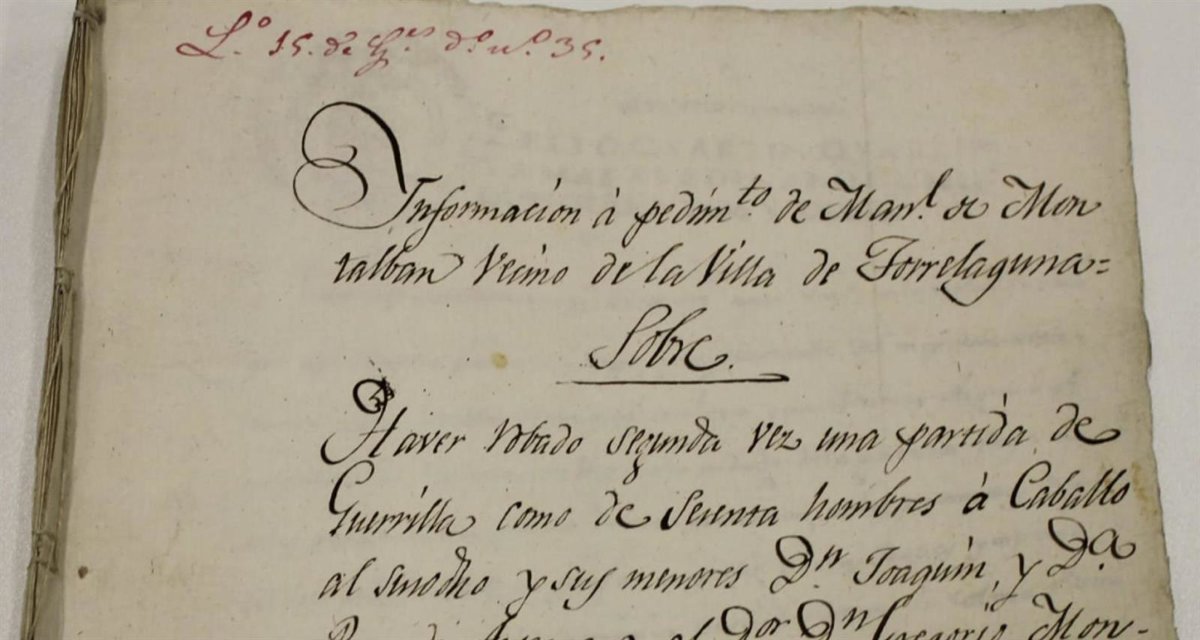 L.º 15. de
dº nº 35.
Informacion à pedim.to de Man.l de Mon
talban Vecino de la Villa de Torrelaguna=
Sobre.
Haver robado segunda vez una partida de
Guerrilla como de sesenta hombres à Caballo
al susodho y sus menores Dn Joaquin, y Da
el Dor Dn Gregorio Mon-